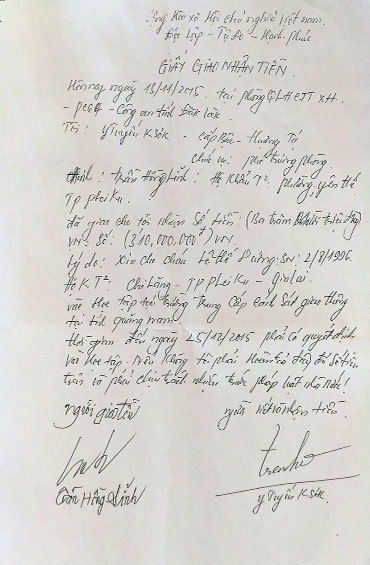 Cộng Hòa xã Hội chủ nghĩa Việt nam.
Độc lập - Tự do - Hạnh phúc
GIẤY GIAO NHẬN TIỀN
Hôm nay ngày 18/11/2015 tại phòng QLHC TT XH.
- PC64 - Công an tỉnh Đăk Lăk.
Tôi : Y Tuyến Ksơk - cấp Bậc - Thượng Tá
chức vụ : phó trưởng phòng
Trần Hồng Lĩnh : Hộ Khẩu T2 : phường yên thế
TP pleiku.
đã giao cho tôi nhận số tiền : (Ba trăm Mười triệu đồng)
VN: Số: (310,000,000đ) VN.
Lý do : Xin cho cháu Lê Thế Sinh: 2/8/1996.
HoKT2: Chi Lăng - TP pleiku - Gia Lai.
vào Học tập tại trường Trung Cấp cảnh sát giao thông
tại tỉnh quảng nam.
thời gian đến ngày 25/12/2015 phải có quyết định
vào Học tập. Nếu không tôi phải hoàn trả đầy đủ số tiền
trên và phải chịu trách nhiệm trước pháp luật nhà nước.
người giao tiền
người viết và nhận tiền.
Trần Hồng Lĩnh
Y Tuyến Ksơk.